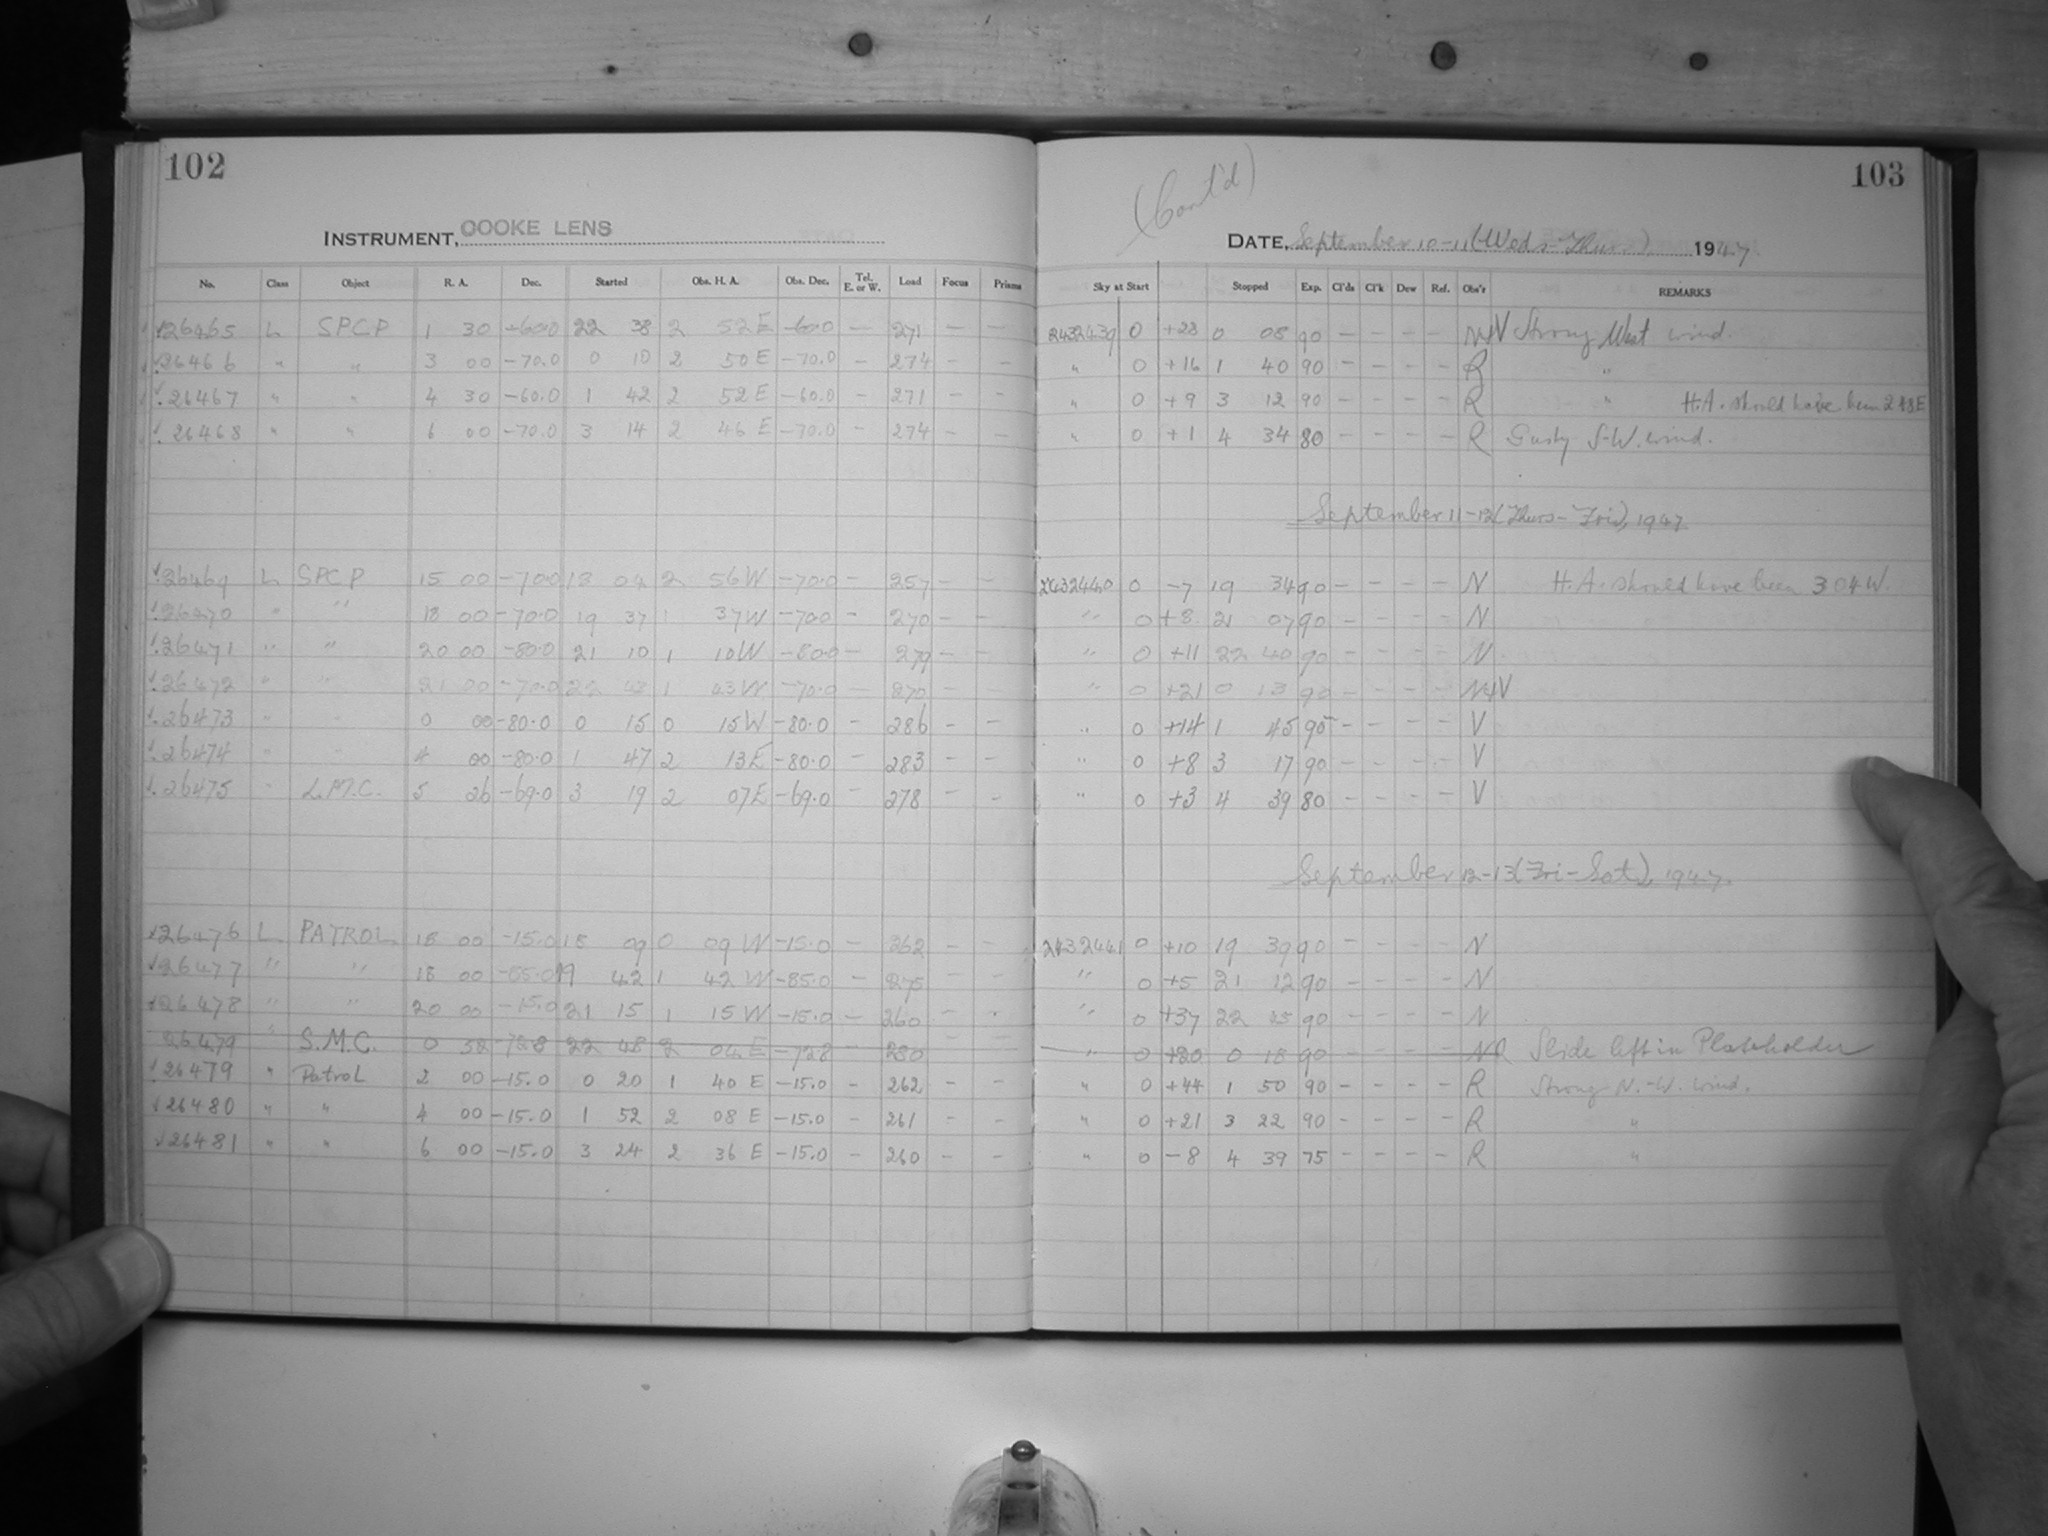 102
INSTRUMENT, COOKE LENS
No. Class Object R. A. Dec. Started Obs. H. A. Obs. Dec. Tel. E. or W. Load Focus Prisms
26465 L SPCP 1 30 -60.0 22 38 2 52 E -60.0 — 271 — —
26466 " " 3 00 -70.0 0 10 2 50 E -70.0 — 274 — —
26467 " " 4 30 -60.0 1 42 2 52 E -60.0 — 271 — —
26468 " " 6 00 -70.0 3 14 2 46 E -70.0 — 274 — —
26469 L SPCP 15 00 -70.0 18 04 2 56 W -70.0 — 257 — —
26470 " " 18 00 -70.0 19 37 1 37 W -70.0 — 270 — —
26471 " " 20 00 -80.0 21 10 1 10 W -80.0 — 279 — —
26472 " " 21 00 -70.0 22 43 1 43 W -70.0 — 270 — —
26473 " " 0 00 -80.0 0 15 0 15 W -80.0 — 286 — —
26474 " " 4 00 -80.0 1 47 2 13 E -80.0 — 283 — —
26475 " L.M.C. 5 26 -69.0 3 19 2 07 E -69.0 — 278 — —
26476 L PATROL 18 00 -15.0 18 09 0 09 W -15.0 — 262 — —
26477 " " 18 00 -85.0 19 42 1 42 W -85.0 — 275 — —
26478 " " 20 00 -15.0 21 15 1 15 W -15.0 — 260 — —
26479 " S.M.C. 0 52 -72.8 22 48 2 04 E -72.8 — 280
26479 " Patrol 2 00 -15.0 0 20 1 40 E -15.0 — 262 — —
26480 " " 4 00 -15.0 1 52 2 08 E -15.0 — 261 — —
26481 " " 6 00 -15.0 3 24 2 36 E -15.0 — 260 — —
103
(Cont'd)
DATE, September 10-11 (Weds-Thurs) 1947
Sky at Start Stopped Exp. Cl'ds Cl'k Dew Ref. Obs'r REMARKS
2432439 0 +28 0 08 90 — — — — N+V Strong West wind.
" 0 +16 1 40 90 — — — — R "
" 0 +9 3 12 90 — — — — R " H.A. should have been 2 48 E
" 0 +1 4 34 80 — — — — R Gusty S-W. wind.
September 11-12 (Thurs-Fri), 1947
2432440 0 -7 19 34 90 — — — — N H.A. should have been 3 04 W.
" 0 +8 21 07 90 — — — — N
" 0 +11 22 40 90 — — — — N
" 0 +21 0 13 90 — — — — N+V
" 0 +14 1 45 90 — — — — V
" 0 +8 3 17 90 — — — — V
" 0 +3 4 39 80 — — — — V
September 12-13 (Fri-Sat), 1947.
2432441 0 +10 19 39 90 — — — — N
" 0 +5 21 12 90 — — — — N
" 0 +37 22 45 90 — — — — N
" 0 +20 0 18 90 — — — — NR Slide left in Plateholder
" 0 +44 1 50 90 — — — — R Strong N.-W. wind.
" 0 +21 3 22 90 — — — — R "
" 0 -8 4 39 75 — — — — R "